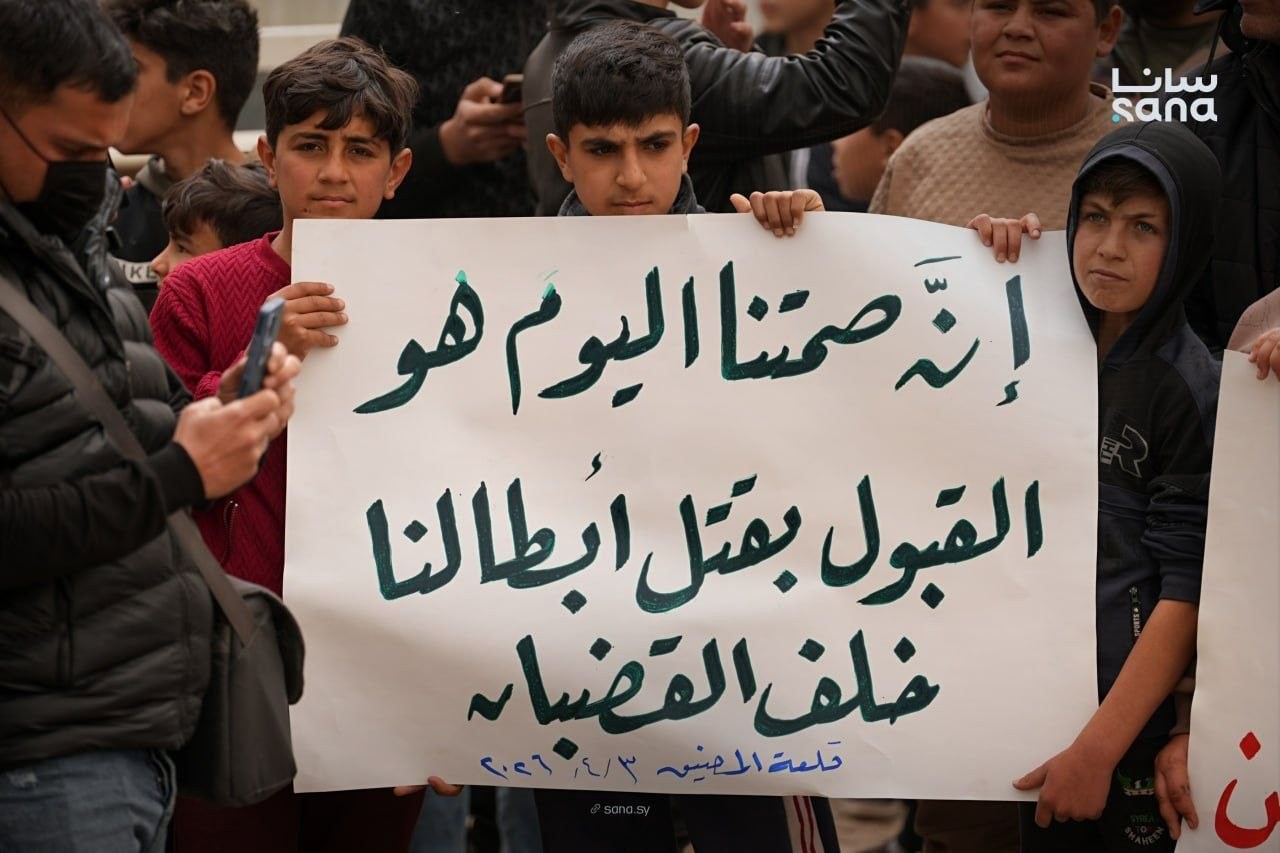 سانا
sana
إنَّ صمتنا اليومَ هو
القبول بقتل أبطالنا
خلف القضبان
قلعة المضيق ٢٠٢٦/٤/٣
sana.sy